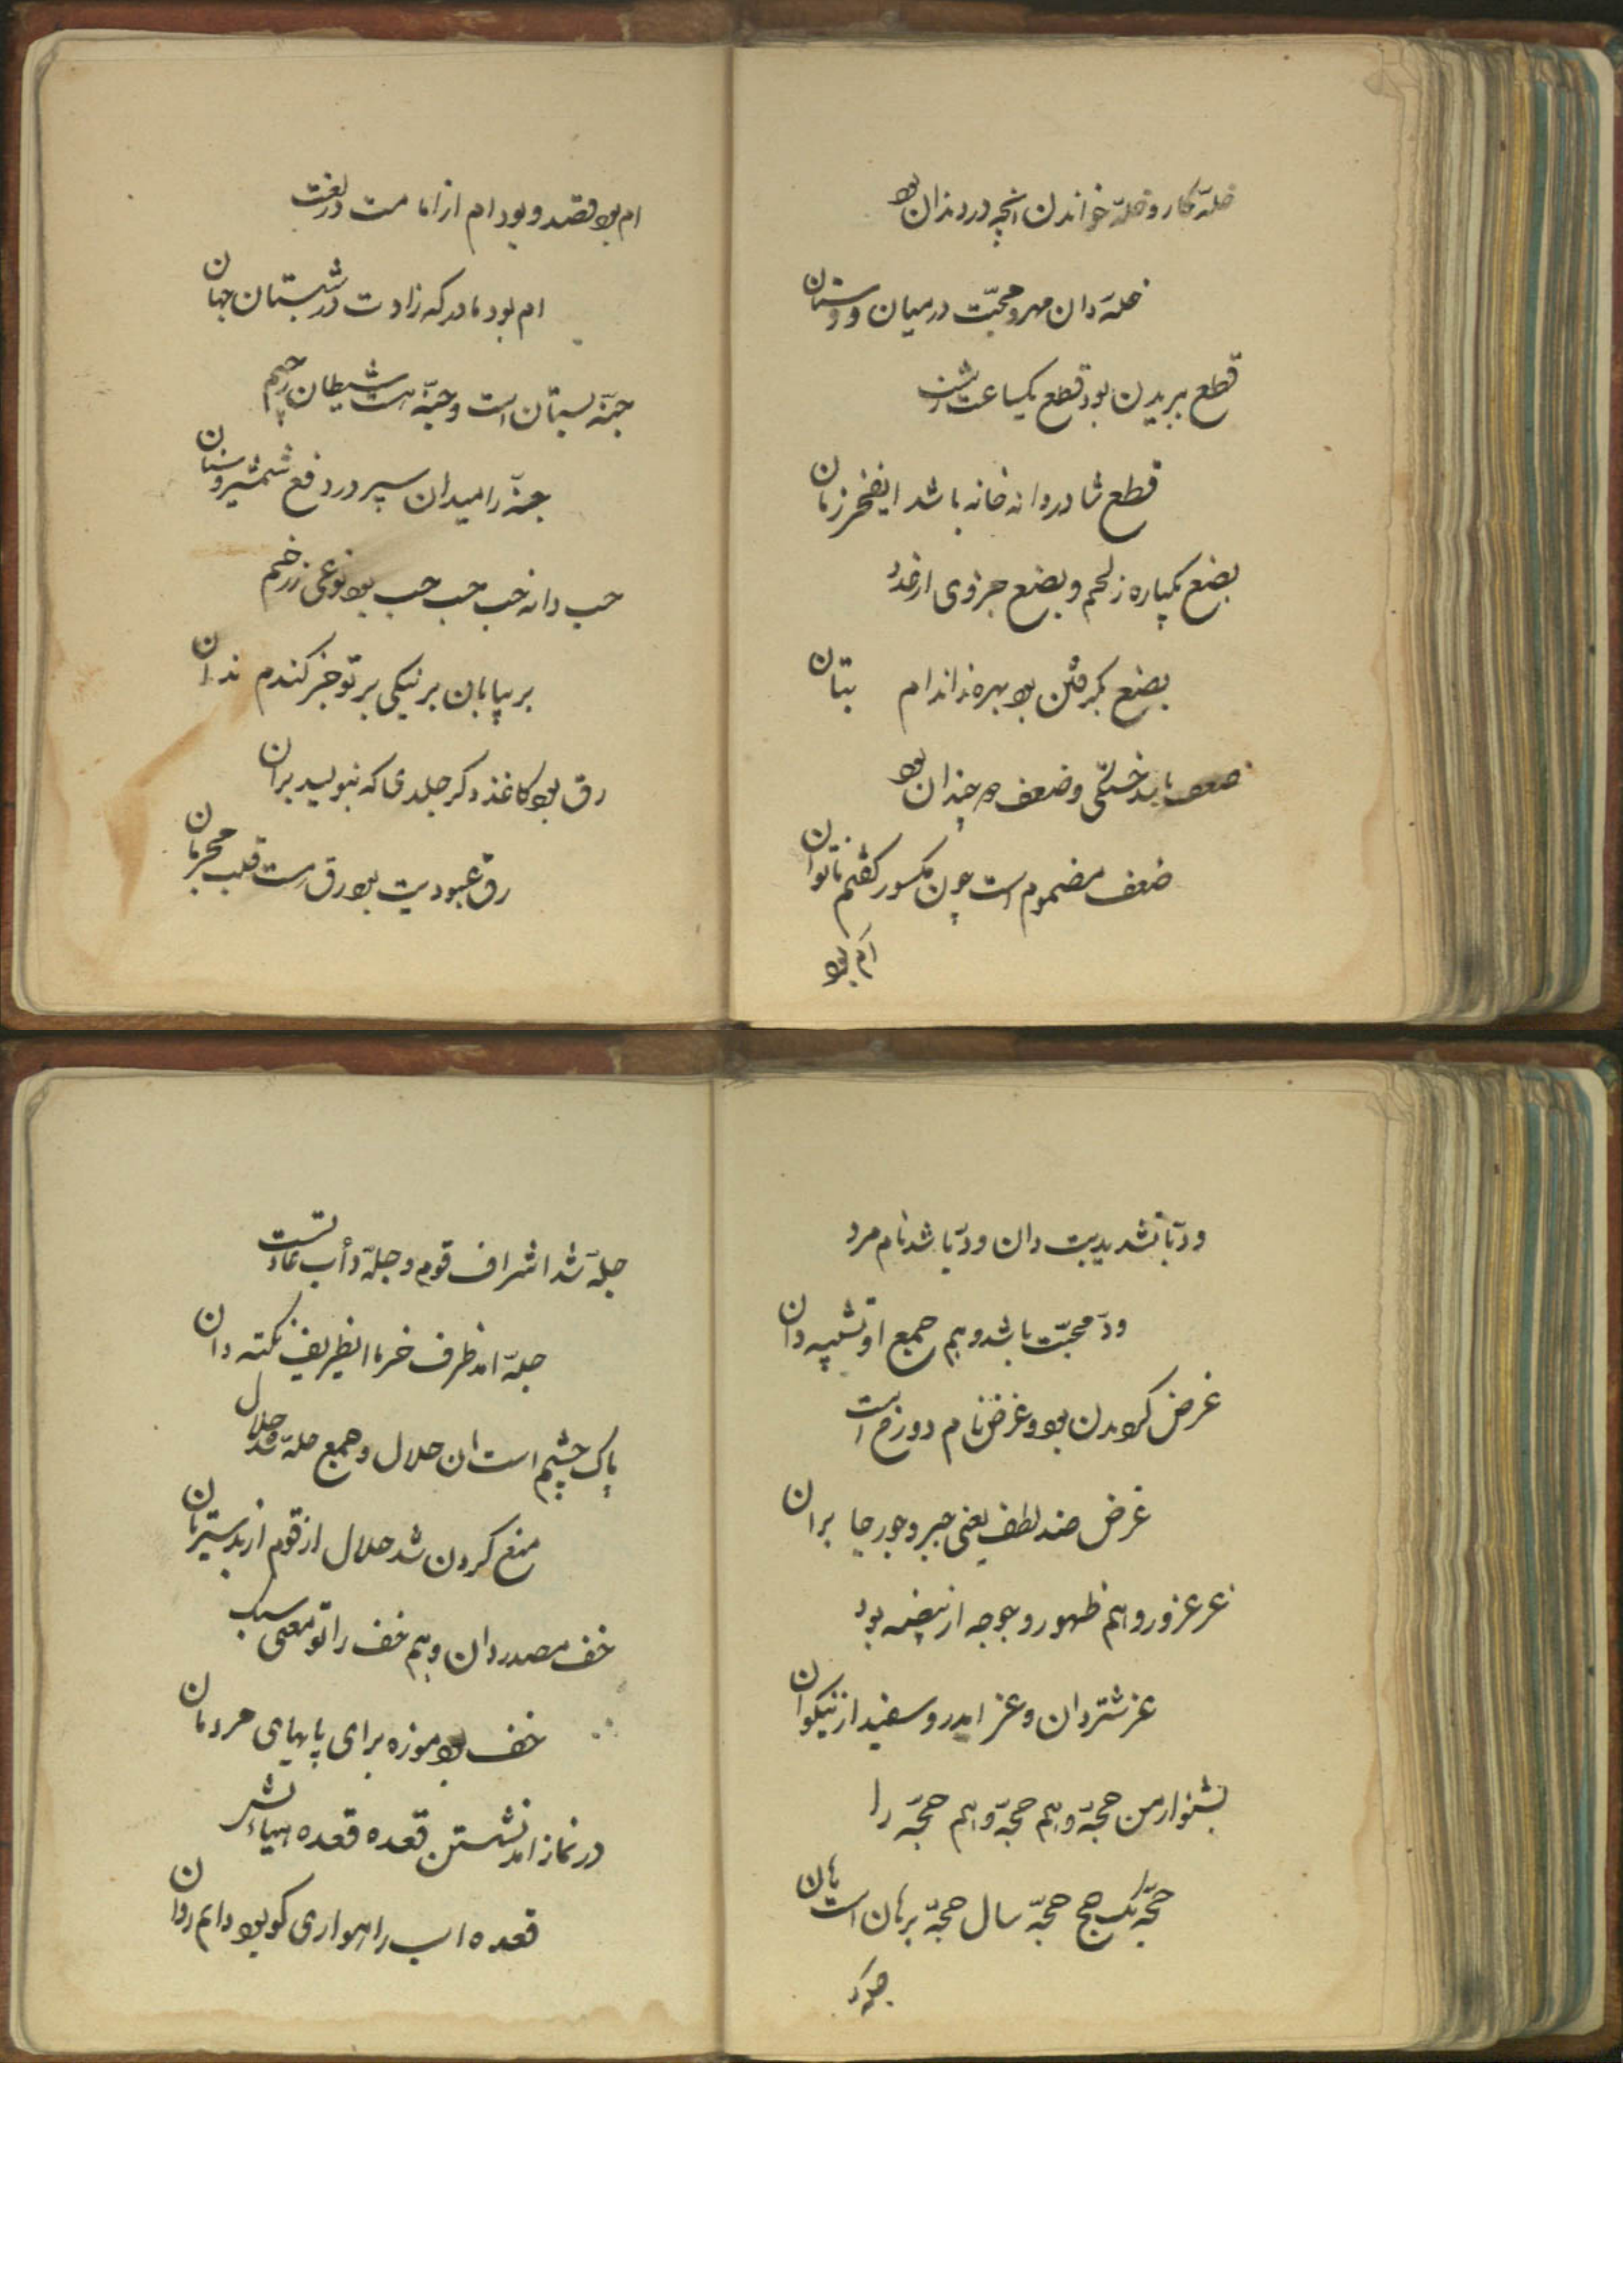 خلّه کار و خلّه خواندن انچه در دندان بود
خلّه دان مهر و محبّت در میان دوستان
قطع ببریدن بود قطع یکساعت ز شب
قطع شادروانه خانه باشد ایفخر زمان
بضع یکپاره ز لحم و بضع جزوی از عدد
بضع بکر فتن بود بهره ز اندام بتان
ضعف باشد خستگی و ضعف دو چندان بود
ضعف مضموم است چون مکسور کفتم ناتوان
اَم بود
ام بود قصد و بود ام از امامت در لغت
ام بود مادر که زادت در شبستان جهان
جنّه بستان است و جنّه هست شیطان رجیم
جنّه را میدان سپر در دفع شمشیر و سنان
حب دانه حب حب حب بود نوعی ز زخم
بر بیابان بر نیکی بر تو جز کندم ندان
رق بود کاغذ دکر جلدی که بنویسد بران
رق عبودیت بود رق است قلب مجرمان
ودّ با تشدید بت دان ودّ باشد نام مرد
ودّ محبّت باشد و هم جمع او تشبیه دان
غرض کردن بود و غرض نام دوزخ است
غرض ضد لطف یعنی جبر و جور جابران
غر غرور و هم ظهور و وجه از بیضه بود
غر شتر دان و غر امد رو سفید از نیکوان
بشنو از من حجّه و هم حجّه و هم حجّه را
حجّه یک حج حجّه سال حجّه برهان است هان
جلّه شد
جلّه شد اشراف قوم و جلّه دأب عادتست
جلّه امد ظرف خرما ایظریف نکته دان
پاک چشم است ان حلال و جمع حلّه شد حلال
منع کردن شد حلال از قوم از بد سیرتان
خف مصدر دان و هم خف را تو معنی سبک
خف بود موزه برای پایهای مردمان
در نماز امد نشستن قعده قعده هیاتش
قعده اسب راهواری کو بود دایم روان